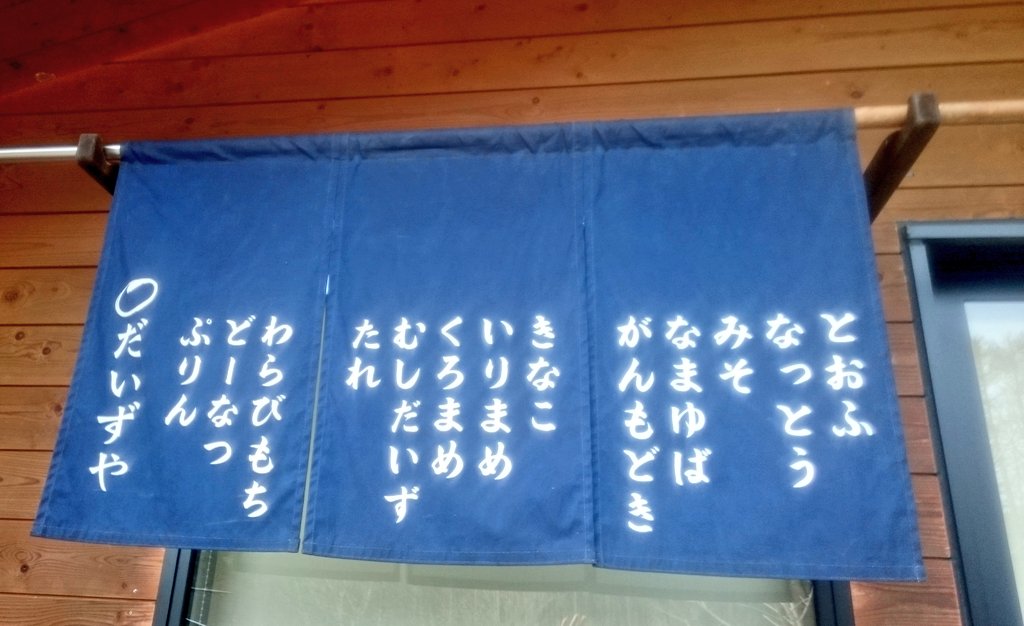 とおふ
なっとう
みそ
なまゆば
がんもどき
きなこ
いりまめ
くろまめ
むしだいず
たれ
わらびもち
どーなつ
ぷりん
〇だいずや